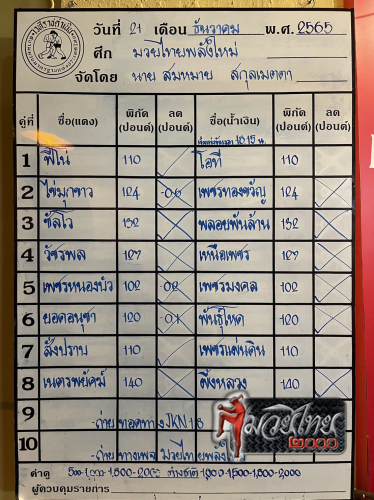 วันที่ 21 เดือน ธันวาคม พ.ศ. 2565
ศึก มวยไทยพลังใหม่
จัดโดย นาย สมหมาย สกุลเมตตา
คู่ที่ ชื่อ(แดง) พิกัด (ปอนด์) ลด (ปอนด์) ชื่อ(น้ำเงิน) พิกัด (ปอนด์) ลด (ปอนด์)
1 ฟีโน่ 110 โอที 110
2 ไข่มุกขาว 124 เพชรทองขวัญ 124
3 ซัลโว 132 พลอยพันล้าน 132
4 วัชรพล 127 เหนือเพชร 127
5 เพชรหนองบัว 102 เพชรมงคล 102
6 ยอดอนุชา 120 พันธุ์โหด 120
7 สังปราบ 110 เพชรแผ่นดิน 110
8 เนตรพยัคฆ์ 140 ผึ้งหลวง 140
9 -ถ่ายทอดทาง JKN 18
10 -ถ่ายทางเพจ มวยไทยพลังใหม่
ค่าดู 500-1,000-1,500-2,000 ต่างชาติ 1,000-1,500-1,800-2,000
ผู้ควบคุมรายการ
มวยไทย
๒๐๐๐